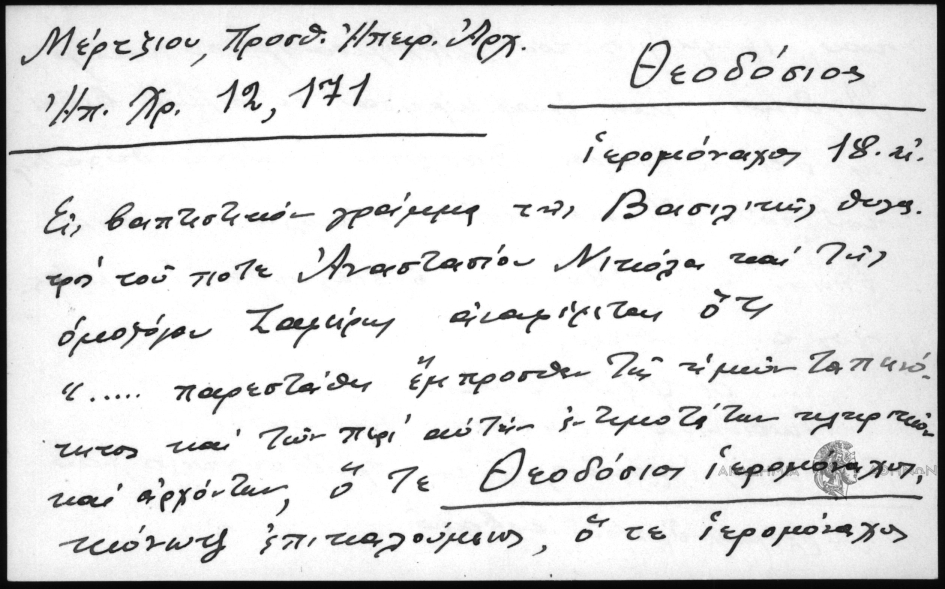 Μέρτζιου, Προσθ. Ἠπειρ. Ἀρχ.
Ἠπ. Χρ. 12, 171
Θεοδόσιος
ἱερομόναχος 18. αἰ.
Εἰς βαπτιστικόν γράμμα τῆς Βασιλικῆς θυγα-
τρό τοῦ ποτε Ἀναστασίου Νικόλα καί τῆς
ὁμοζύγου Σαμύρης ἀναφέρεται ὅτι
"..... παρεστάθη ἔμπροσθεν τῆς ἡμῶν ταπεινό-
τητος καί τῶν περί αὐτήν ἐντιμοτάτων κληρικῶν
καί ἀρχόντων, ὅ τε Θεοδόσιος ἱερομόναχος,
ἐπικαλούμενος, ὅ τε ἱερομόναχος